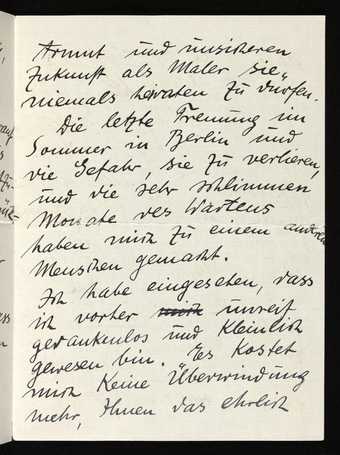 Armut und unsicheren
Zukunft als Maler sie„
niemals heiraten zu dürfen.
Die letzte Trennung im
Sommer in Berlin und
die Gefahr, sie zu verlieren,
und die sehr schlimmen
Monate des Wartens
haben mich zu einem anderen
Menschen gemacht.
Ich habe eingesehen, dass
ich vorher mich unreif
gedankenlos und kleinlich
gewesen bin. Es kostet
mich keine Überwindung
mehr, Ihnen das ehrlich